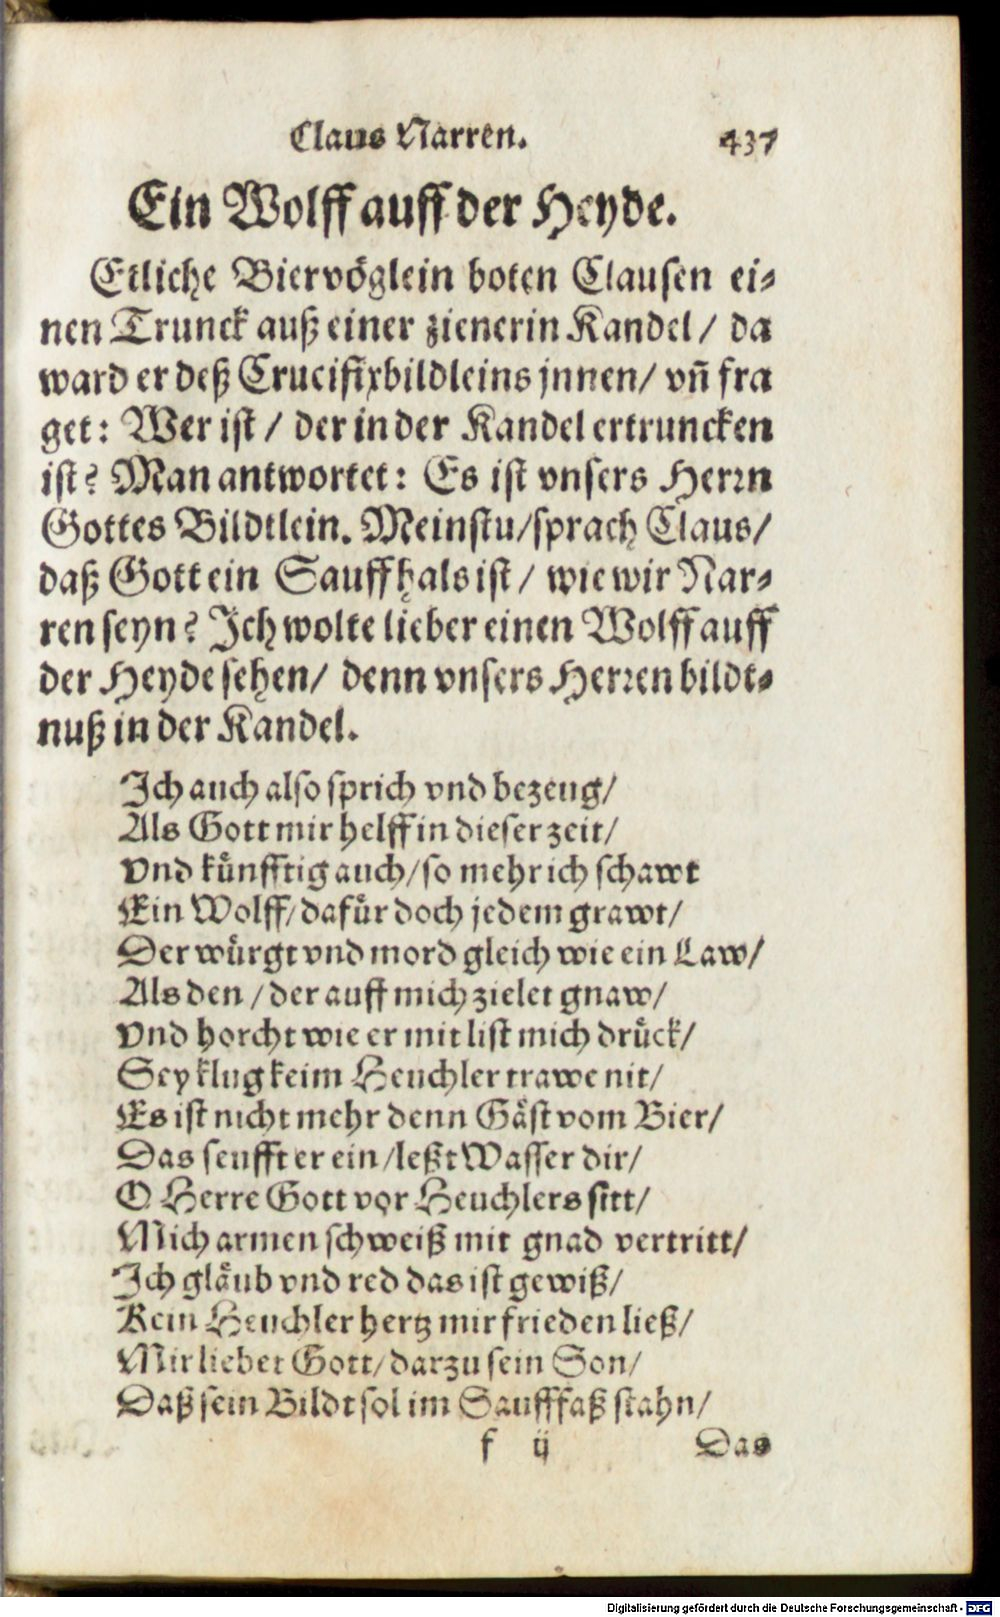 Claus Narren. 437
Ein Wolff auff der Heyde.
Etliche Biervöglein boten Clausen ei-
nen Trunck auß einer zienerin Kandel / da
ward er deß Crucifixbildleins jnnen / vñ fra
get: Wer ist / der in der Kandel ertruncken
ist? Man antwortet: Es ist vnsers Herrn
Gottes Bildtlein. Meinstu / sprach Claus /
daß Gott ein Sauffhals ist / wie wir Nar-
ren seyn? Ich wolte lieber einen Wolff auff
der Heyde sehen / denn vnsers Herren bildt-
nuß in der Kandel.
Ich auch also sprich vnd bezeug /
Als Gott mir helff in dieser zeit /
Vnd künfftig auch / so mehr ich schawt
Ein Wolff / dafür doch jedem grawt /
Der würgt vnd mord gleich wie ein Law /
Als den / der auff mich zielet gnaw /
Vnd horcht wie er mit list mich drück /
Sey klug keim Heuchler trawe nit /
Es ist nicht mehr denn Gäst vom Bier /
Das seufft er ein / leßt Wasser dir /
O Herre Gott vor Heuchlers sitt /
Mich armen schweiß mit gnad vertritt /
Ich gläub vnd red das ist gewiß /
Kein Heuchler hertz mir frieden ließ /
Mir liebet Gott / darzu sein Son /
Daß sein Bildt sol im Saufffaß stahn /
f ij Das
Digitalisierung gefördert durch die Deutsche Forschungsgemeinschaft - DFG